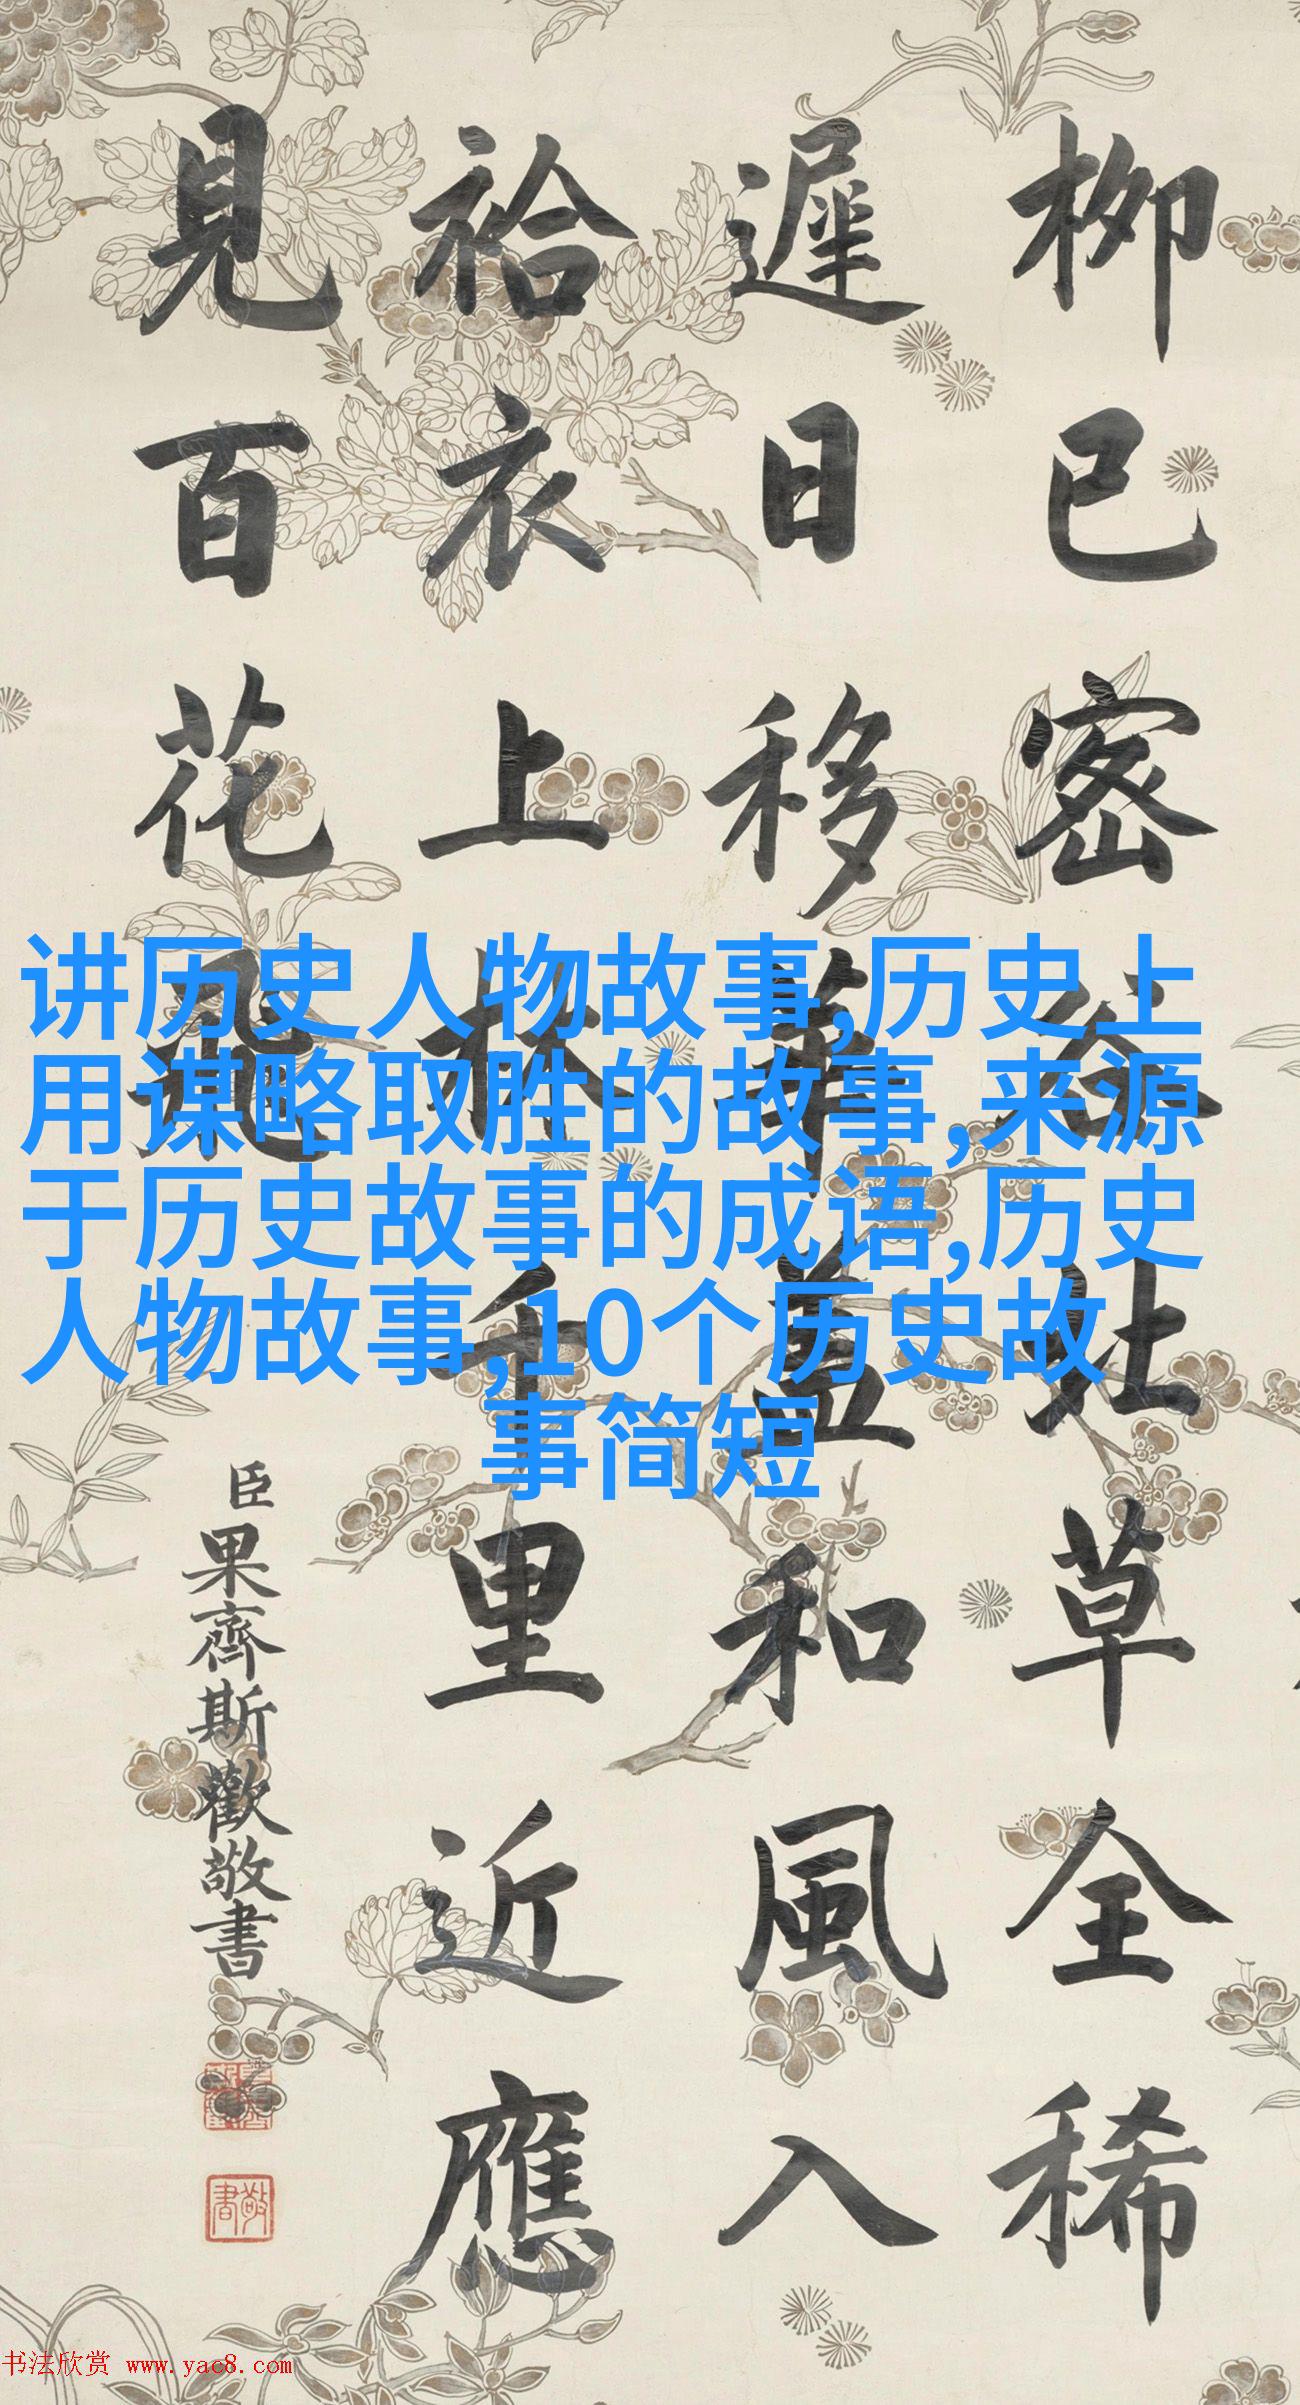 栁已宻谷北草全稀
遲日移華蓋和風入
袷衣上林千里近應
見百花飛
臣果齊斯歡敬書
敬書
讲历史人物故事,历史上
用谋略取胜的故事,来源
于历史故事的成语,历史
人物故事,10个历史故
事简短
书法欣赏 www.yac8.com